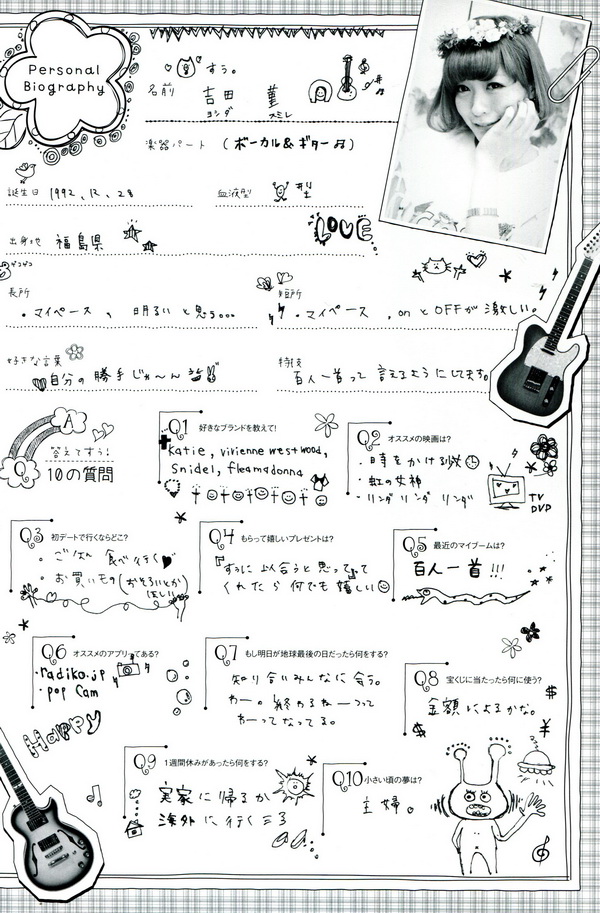 Personal
Biography
すう。
名前 吉田 菫
ヨシダ スミレ
楽器パート (ボーカル&ギター♫)
誕生日 1992, 12, 28
血液型 型
出身地 福島県
LOVE
長所
・マイペース、明るいと思う。。。
短所
・マイペース、onとOFFが激しい。
好きな言葉
自分の勝手じゃ〜ん
特技
百人一首って言えるようにしてます。
Q A
答えてすぅ!
10の質問
Q1 好きなブランドを教えて!
Katie, vivienne westwood,
Snidel, fleamadonna
Q2 オススメの映画は?
・時をかける少女
・虹の女神
・リンダ リンダ リンダ
TV
DVD
Q3 初デートで行くならどこ?
・ごはん食べ行く♥
・お買いもの(おそろいとか
ほしい)
Q4 もらって嬉しいプレゼントは?
『すぅに似合うと思って』って
くれたら何でも嬉しい☺
Q5 最近のマイブームは?
百人一首!!!
Q6 オススメのアプリってある?
・radiko.jp
・pop Cam
Happy
Q7 もし明日が地球最後の日だったら何をする?
知り合いみんなに会う。
わー。終わるねーっつって
わーってなってる。
Q8 宝くじに当たったら何に使う?
金額によるかな。
$
¥
$
Q9 1週間休みがあったら何をする?
実家に帰るか
海外に行く
Q10 小さい頃の夢は?
主婦。